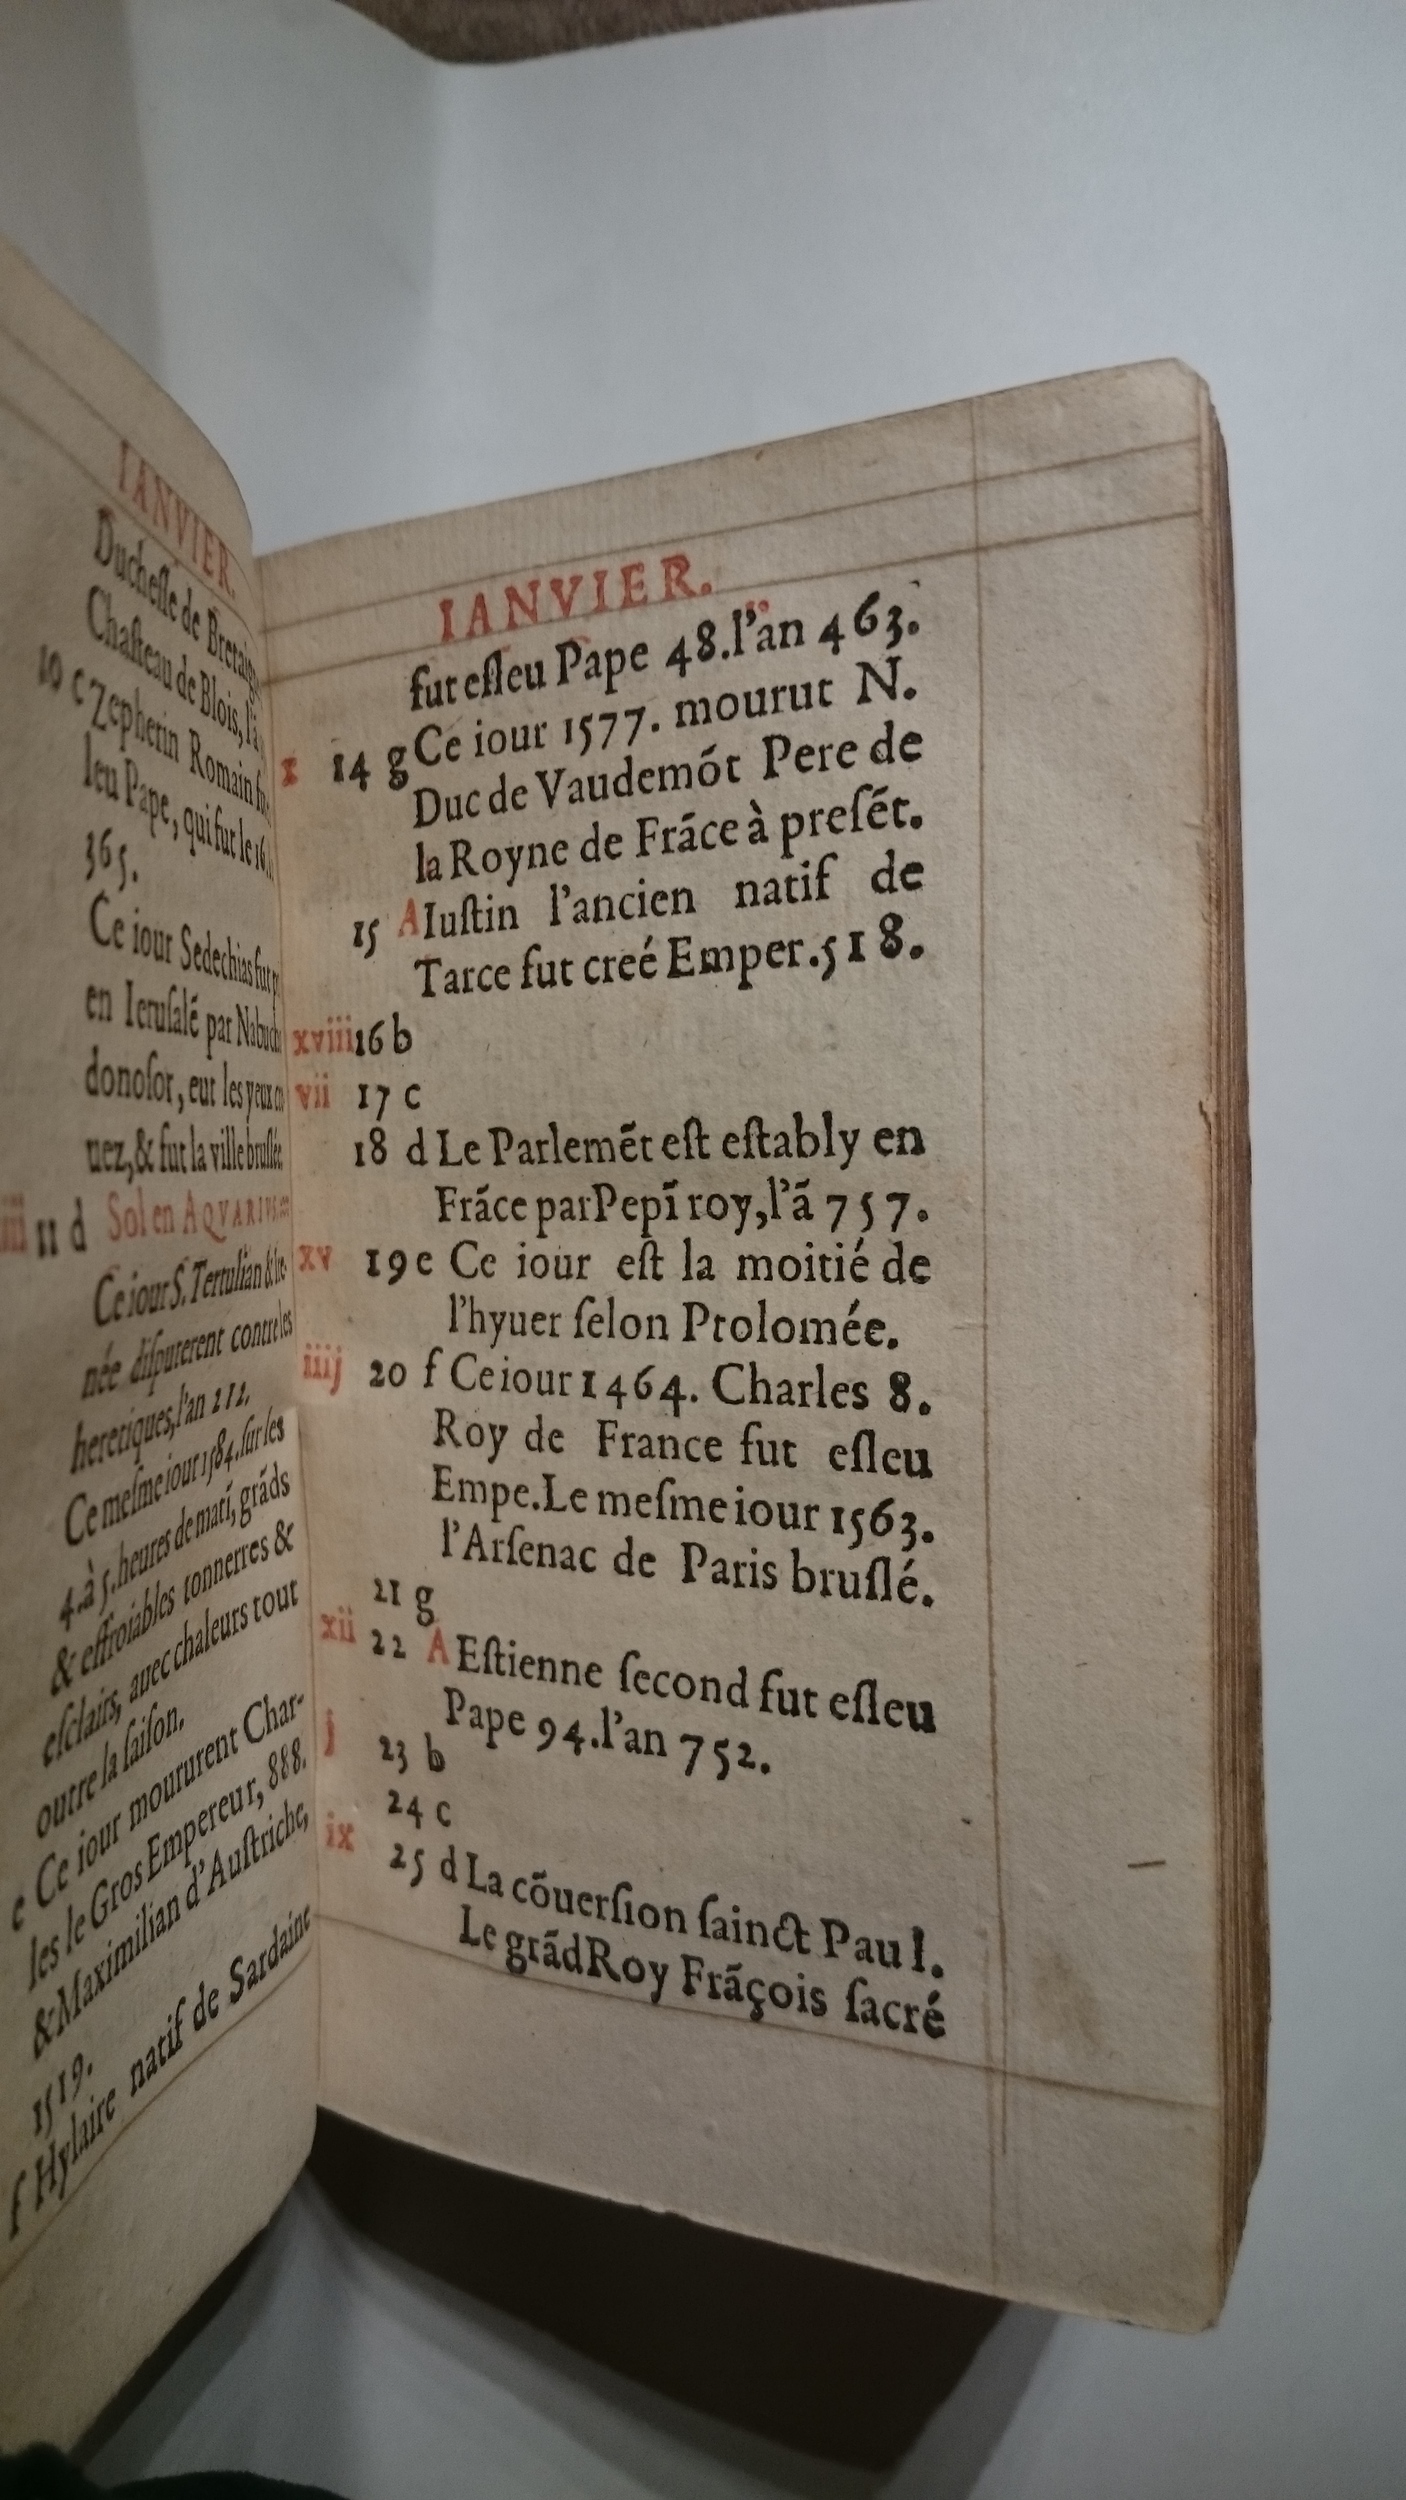 IANVIER.
Duchesse de
Chasteau de Blois,
10 c Zepherin Romain
leu Pape, qui fut le 16.
365.
Ce iour Sedechias fut
en Ierusalé par
donosor, eut les yeux
uez, & fut la ville bruslée
11 d Sol en AQVARIVS
Ce iour S. Tertulian &
née disputerent contre les
heretiques, l'an 212.
Ce mesme iour 1584. sur les
4. à 5. heures de matí, grãds
& effroiables tonnerres &
esclairs, auec chaleurs tout
outre la saison.
e Ce iour moururent Char-
les le Gros Empereur, 888.
& Maximilian d'Austriche,
1519.
f Hylaire natif de Sardaine
IANVIER.
fut esleu Pape 48. l'an 463.
x 14 g Ce iour 1577. mourut N.
Duc de Vaudemót Pere de
la Royne de Fráce à presét.
15 A Iustin l'ancien natif de
Tarce fut creé Emper. 518.
xviii 16 b
vii 17 c
18 d Le Parlemẽt est estably en
Fráce par Pepĩ roy, l'ã 757.
xv 19 e Ce iour est la moitié de
l'hyuer selon Ptolomée.
iiij 20 f Ce iour 1464. Charles 8.
Roy de France fut esleu
Empe. Le mesme iour 1563.
l'Arsenac de Paris bruslé.
21 g
xii 22 A Estienne second fut esleu
Pape 94. l'an 752.
j 23 b
24 c
ix 25 d La cõuersion sainct Paul.
Le grãd Roy Frãçois sacré